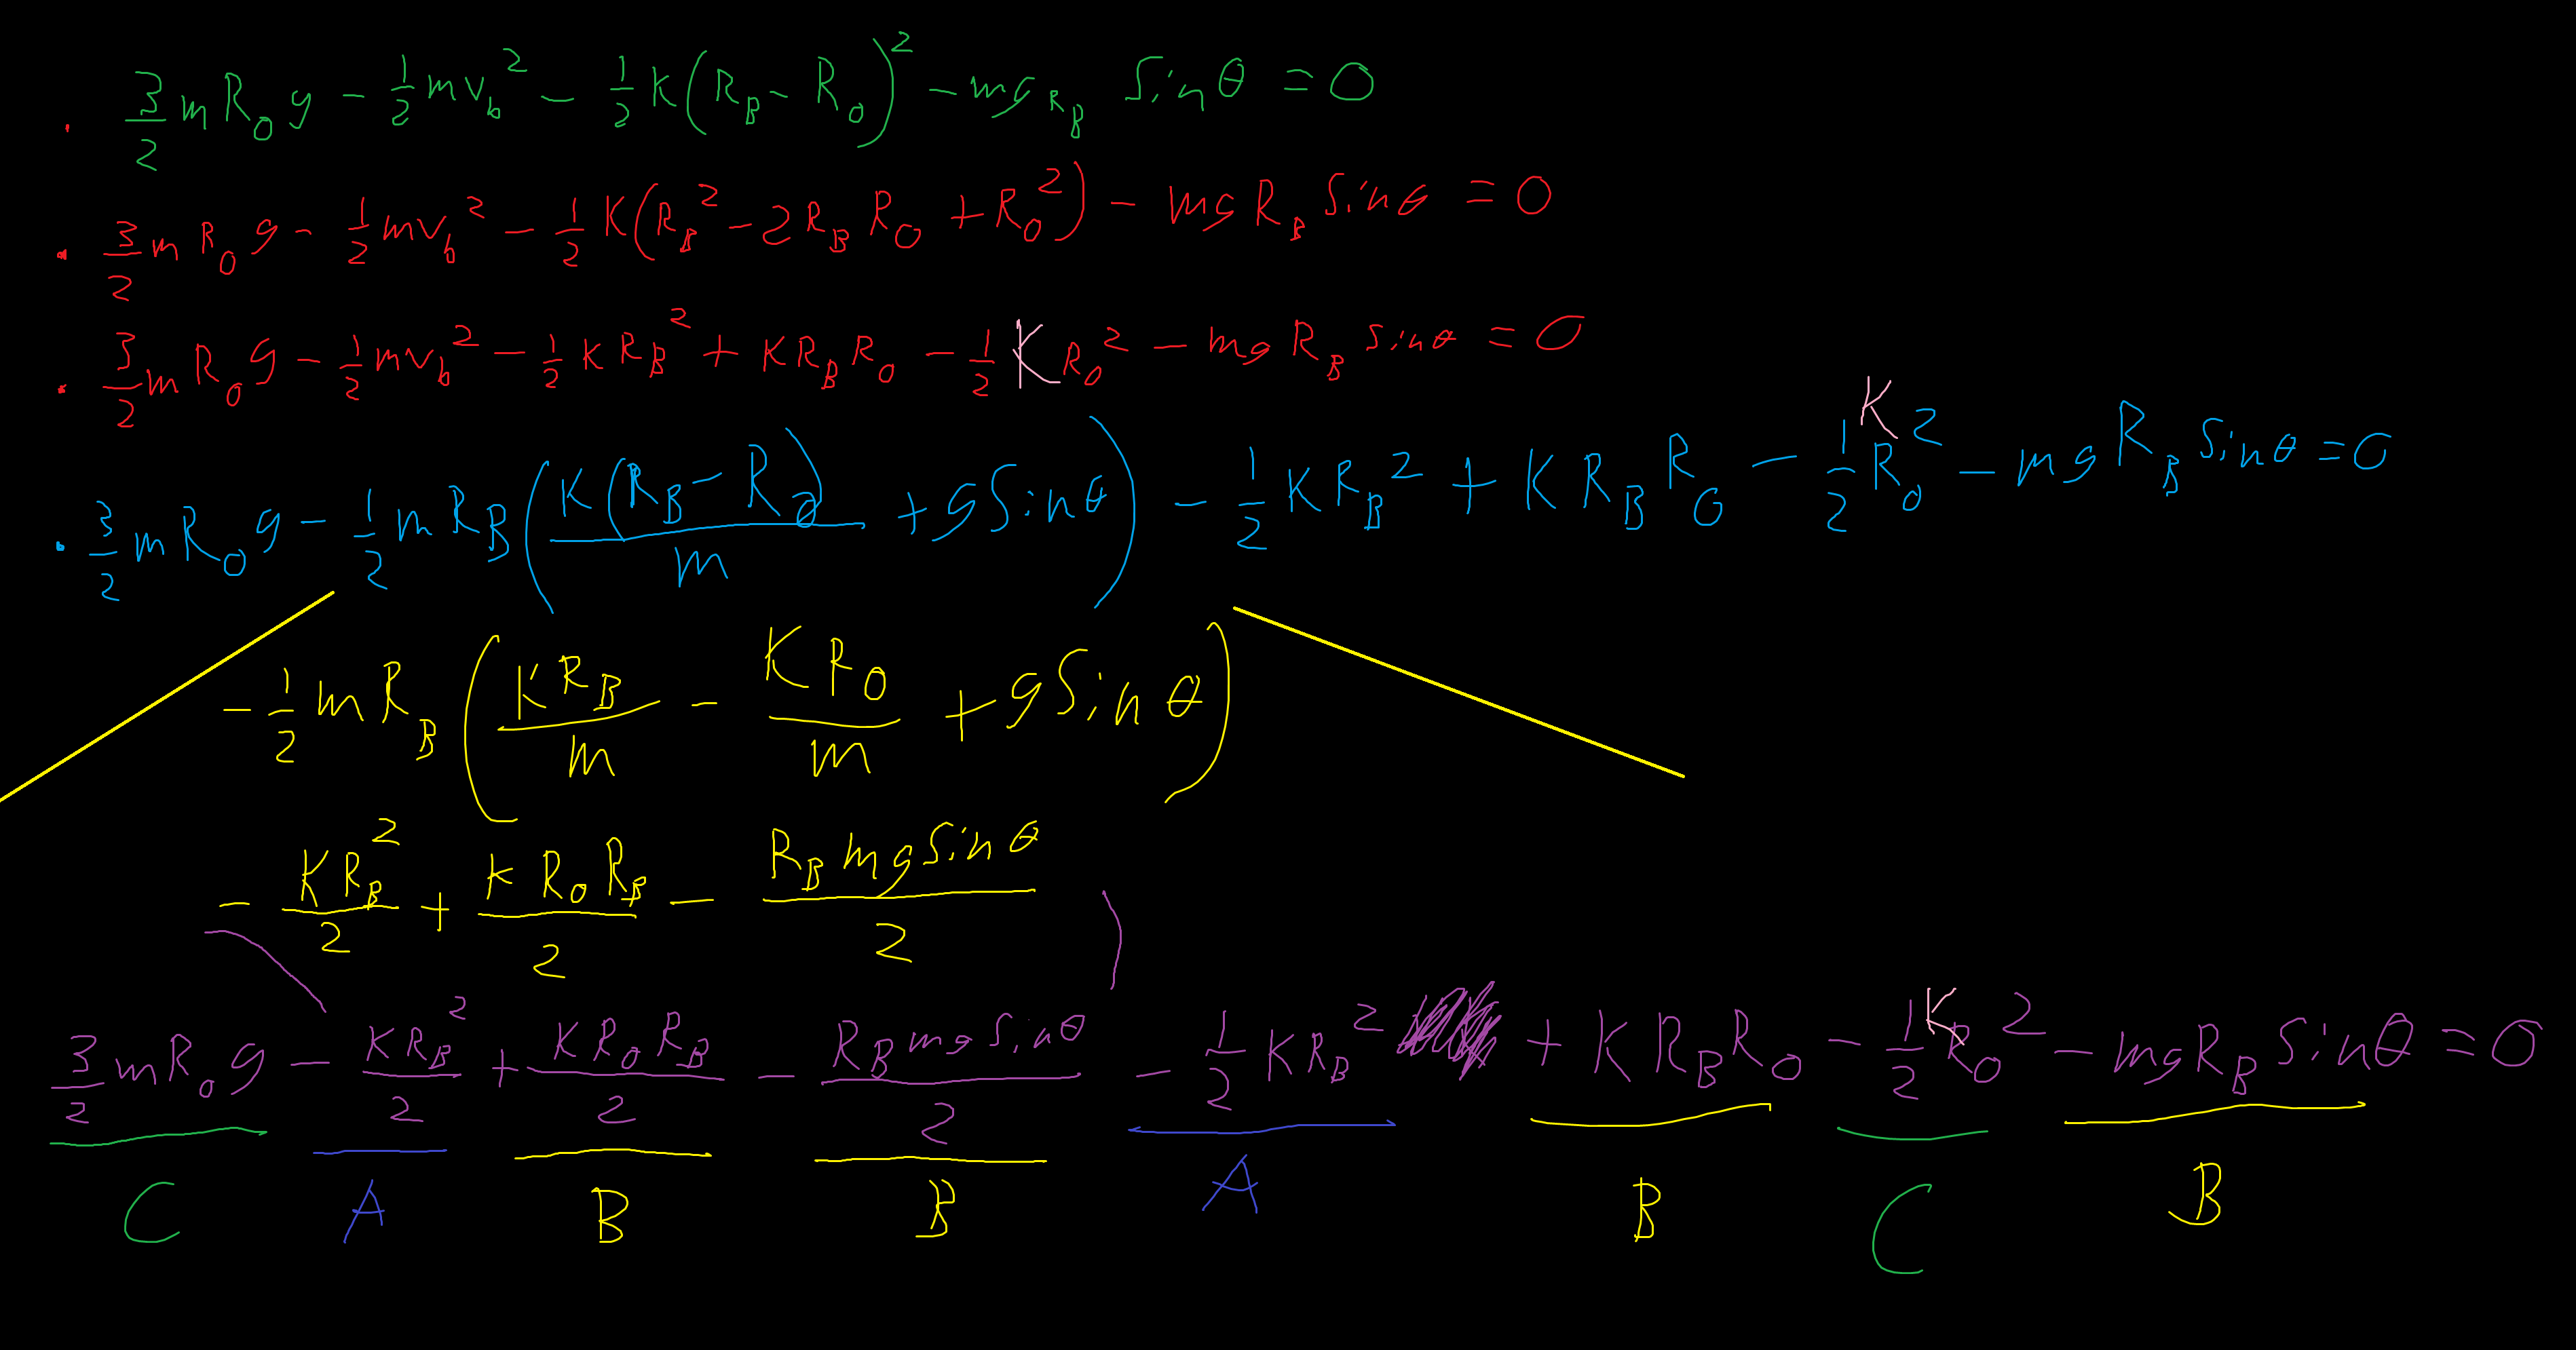 · 3/2 m R₀ g − 1/2 m v_b² − 1/2 K(R_B − R₀)² − mg R_B Sinθ = 0
· 3/2 m R₀ g − 1/2 m v_b² − 1/2 K(R_B² − 2R_B R₀ + R₀²) − mg R_B Sinθ = 0
· 3/2 m R₀ g − 1/2 m v_b² − 1/2 K R_B² + K R_B R₀ − 1/2 K R₀² − mg R_B sinθ = 0
· 3/2 m R₀ g − 1/2 m R_B (K(R_B − R₀)/m + g Sinθ) − 1/2 K R_B² + K R_B R₀ − 1/2 K R₀² − mg R_B Sinθ = 0
− 1/2 m R_B (K R_B/m − K R₀/m + g Sinθ)
− K R_B²/2 + K R₀ R_B/2 − R_B mg Sinθ/2
3/2 m R₀ g − K R_B²/2 + K R₀ R_B/2 − R_B mg Sinθ/2 − 1/2 K R_B² + K R_B R₀ − 1/2 K R₀² − mg R_B Sinθ = 0
C A B B A B C B